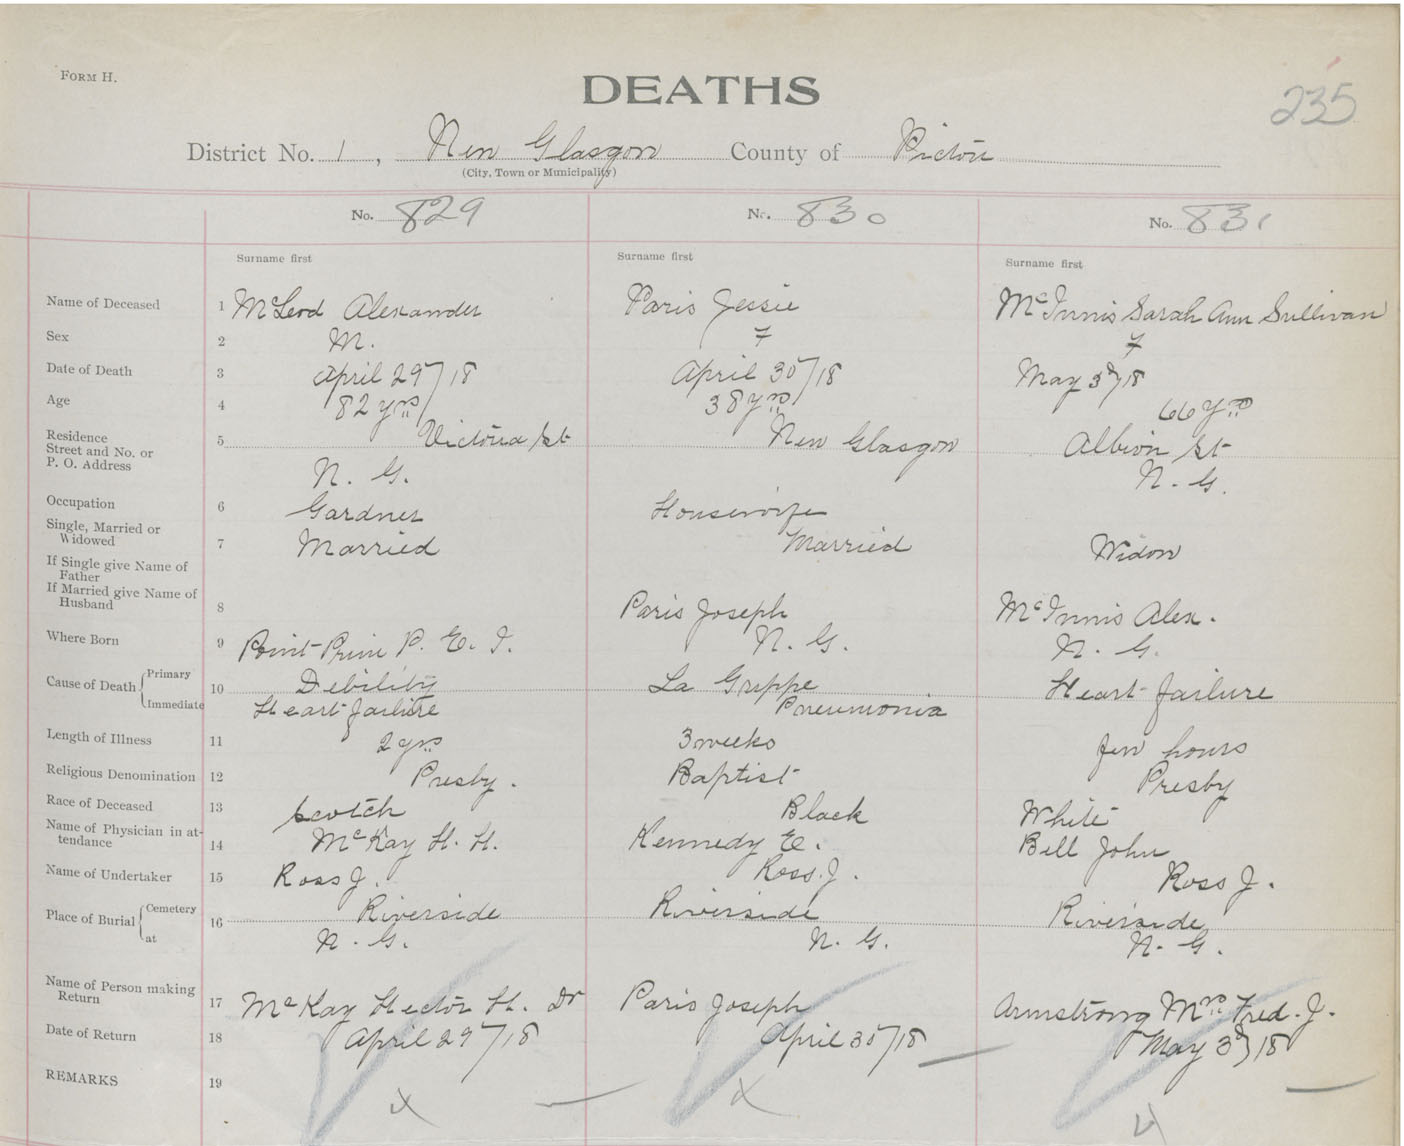 FORM H.
DEATHS
235
District No. 1, New Glasgow County of Pictou
(City, Town or Municipality)
No. 829 No. 830 No. 831
Surname first Surname first Surname first
Name of Deceased 1 McLeod Alexander Paris Jessie McInnis Sarah Ann Sullivan
Sex 2 M. F F
Date of Death 3 April 29/18 April 30/18 May 3d/18
Age 4 82 yrs 38 yrs 66 yrs
Residence
Street and No. or 5 Victoria St New Glasgow Albion St
P. O. Address N. G. N. G.
Occupation 6 Gardner Housewife
Single, Married or
Widowed 7 Married Married Widow
If Single give Name of
Father
If Married give Name of
Husband 8 Paris Joseph McInnis Alex.
Where Born 9 Point Prim P. E. I. N. G. N. G.
Cause of Death Primary 10 Debility La Grippe Heart failure
Immediate Heart failure Pneumonia
Length of Illness 11 2 yrs 3 weeks few hours
Religious Denomination 12 Presby. Baptist Presby
Race of Deceased 13 Scotch Black White
Name of Physician in at-
tendance 14 McKay H. H. Kennedy E. Bell John
Name of Undertaker 15 Ross J. Ross. J. Ross J.
Place of Burial Cemetery 16 Riverside Riverside Riverside
at N. G. N. G. N. G.
Name of Person making
Return 17 McKay Hector H. Dr Paris Joseph Armstrong Mrs Fred. J.
Date of Return 18 April 29/18 April 30/18 May 3d/18
REMARKS 19
x x